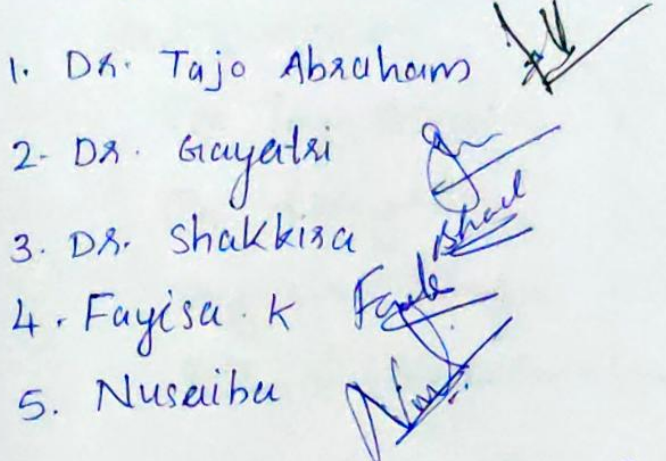 1. Dr. Tajo Abraham
2. Dr. Gayatri
3. Dr. Shakkira
4. Fayisa. K
5. Nusaiba